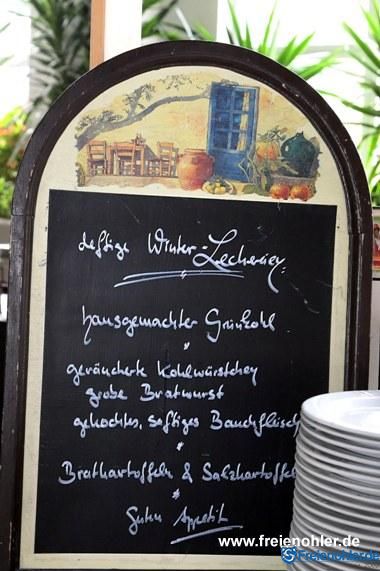 deftige Winter-Leckerey
hausgemachter Grünkohl
*
geräucherte Kohlwürstchen
grobe Bratwurst
gekochtes, saftiges Bauchfleisch
*
Bratkartoffeln & Salzkartoffel
*
Guten Appetit
www.freienohler.de
Freienohler.de